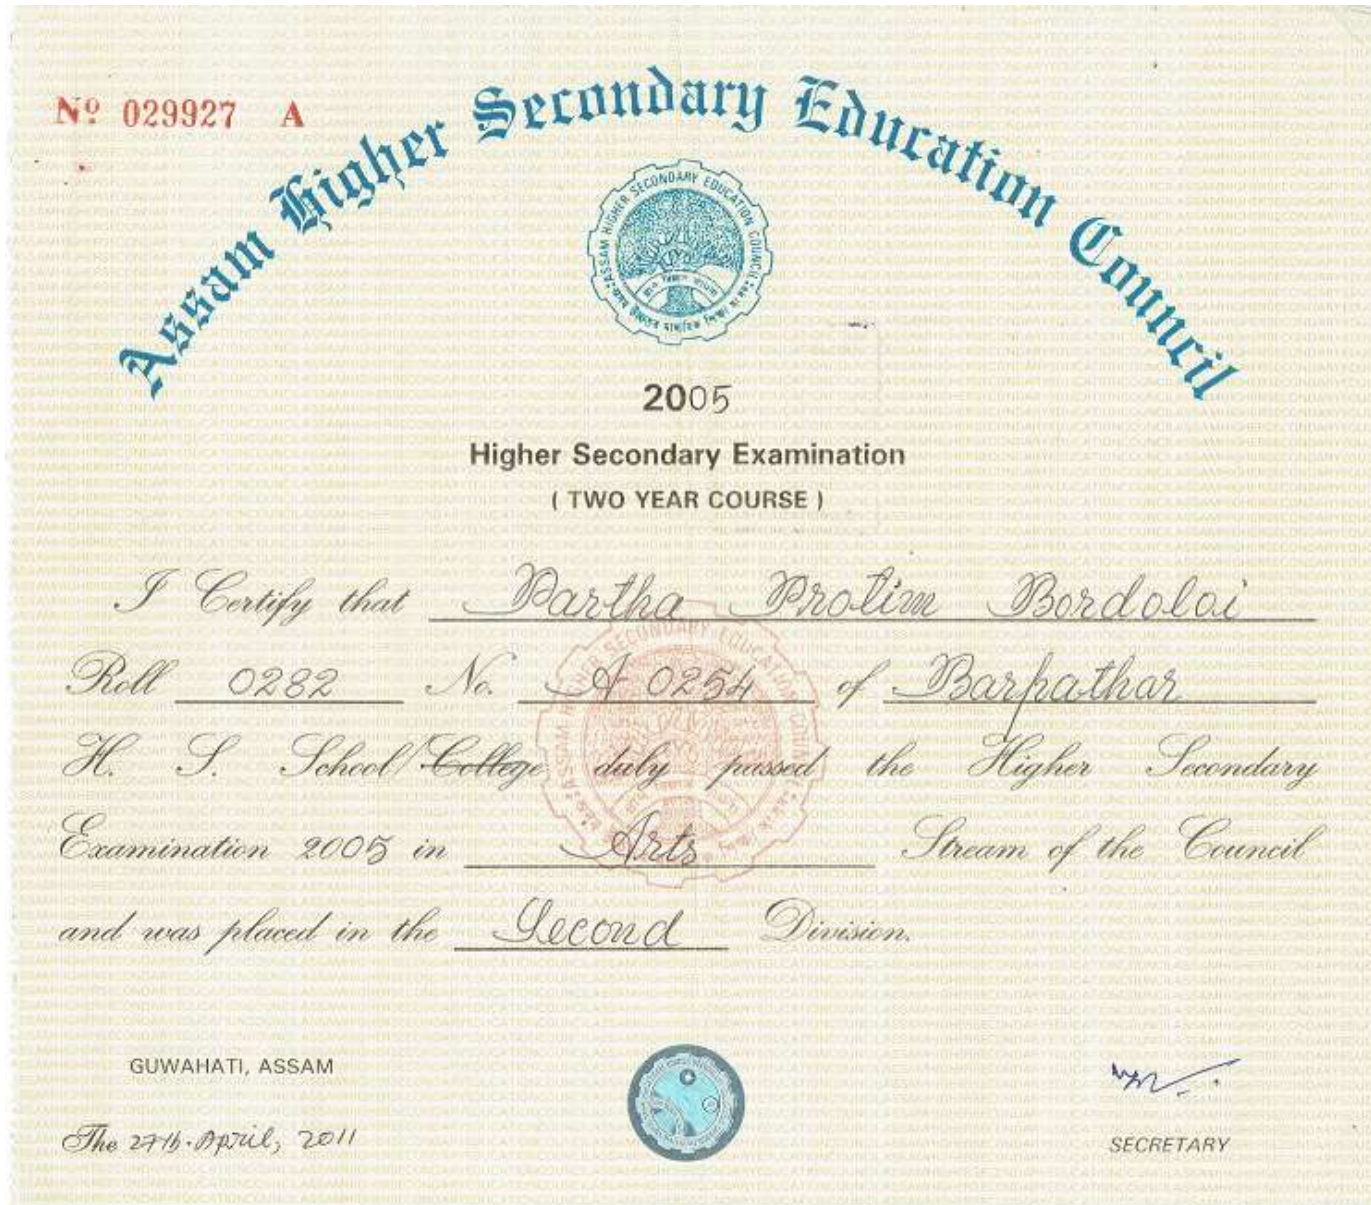 Nº 029927 A
Assam Higher Secondary Education Council
ASSAM HIGHER SECONDARY EDUCATION COUNCIL
2005
Higher Secondary Examination
( TWO YEAR COURSE )
I Certify that Partha Protim Bordoloi
Roll 0282 No. A 0254 of Barpathar
H. S. School/College duly passed the Higher Secondary
Examination 2005 in Arts Stream of the Council
and was placed in the Second Division.
GUWAHATI, ASSAM
The 27th April, 2011
SECRETARY